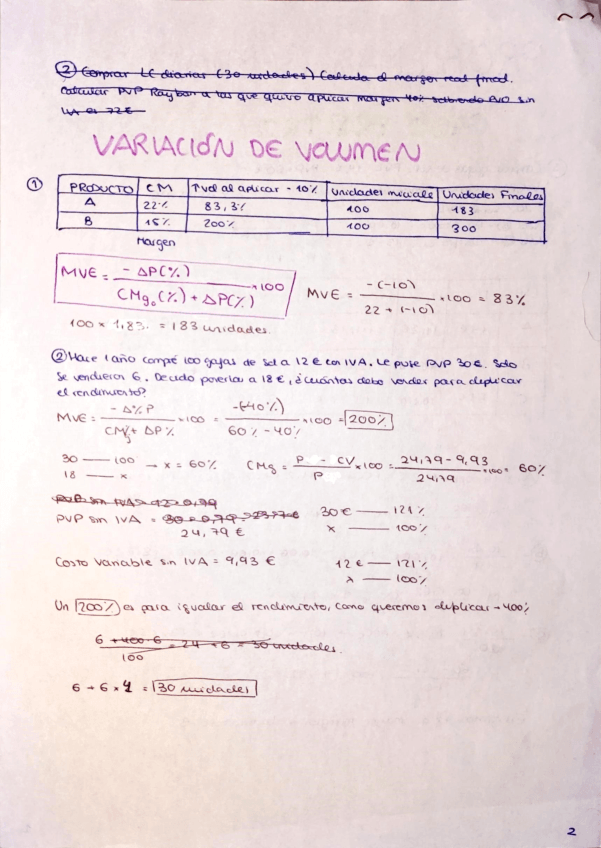 ② Comprar LC diarias (30 unidades) Calcula el margen real final.
Calcular PVP Rayban a las que quiero aplicar margen 40% sabiendo PVO sin
IVA es 72€
VARIACIÓN DE VOLUMEN
① PRODUCTO CM 1 vol al aplicar - 10% Unidades iniciale Unidades Finales
A 22% 83,3% 100 183
B 15% 200% 100 300
Margen
MVE = - ΔP(%) / CMg₀(%) + ΔP(%) × 100
MVE = -(-10) / 22 + (-10) × 100 = 83%
100 × 1,83 = 183 unidades
② Hace 1 año compré 100 gafas de sol a 12€ con IVA. Le puse PVP 30€. Solo
se vendieron 6. Decido ponerlas a 18€, ¿cuántas debo vender para duplicar
el rendimiento?
MVE = - Δ% P / CMg + ΔP% × 100 = -(-40%) / 60% - 40% × 100 = 200%
30 — 100
18 — x → x = 60%
CMg = P - CV / P × 100 = 24,79 - 9,93 / 24,79 × 100 = 60%
PVP sin IVA = 30 × 0,79 = 23,7€
24,79 €
30€ — 121%
x — 100%
Costo Variable sin IVA = 9,93 €
12€ — 121%
x — 100%
Un 200% es para igualar el rendimiento, como queremos duplicar → 400%
6 + 400 · 6 / 100 = 24 + 6 = 30 unidades.
6 + 6 × 4 = 30 unidades
2